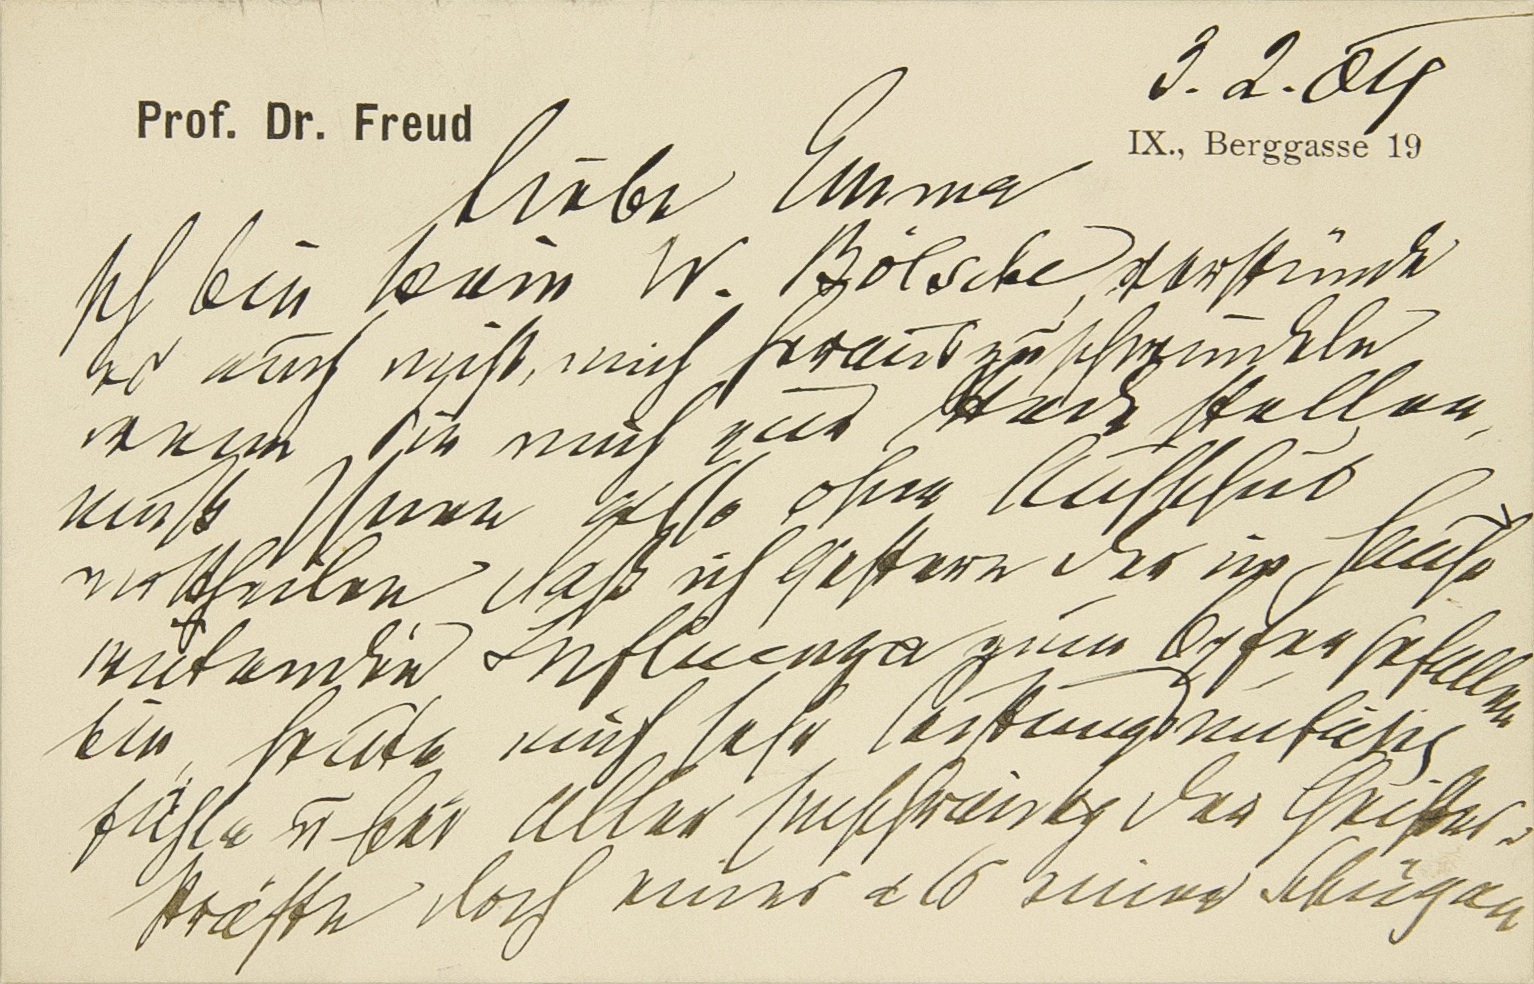 3. 2. 04
Prof. Dr. Freud
IX., Berggasse 19
Liebe Emma
Ich bin kein W. Bölsche, verstünde
es auch nicht, mich herauszuschwindeln
wenn Sie mich zur Rede stellen,
muß Ihnen also ohne Aufschub
mittheilen daß ich gestern der im Hause
wütenden Influenza zum Opfer gefallen
bin, heute mich sehr leistungsunfähig
fühle u bei aller der Geistes-
kräfte doch eines als einen